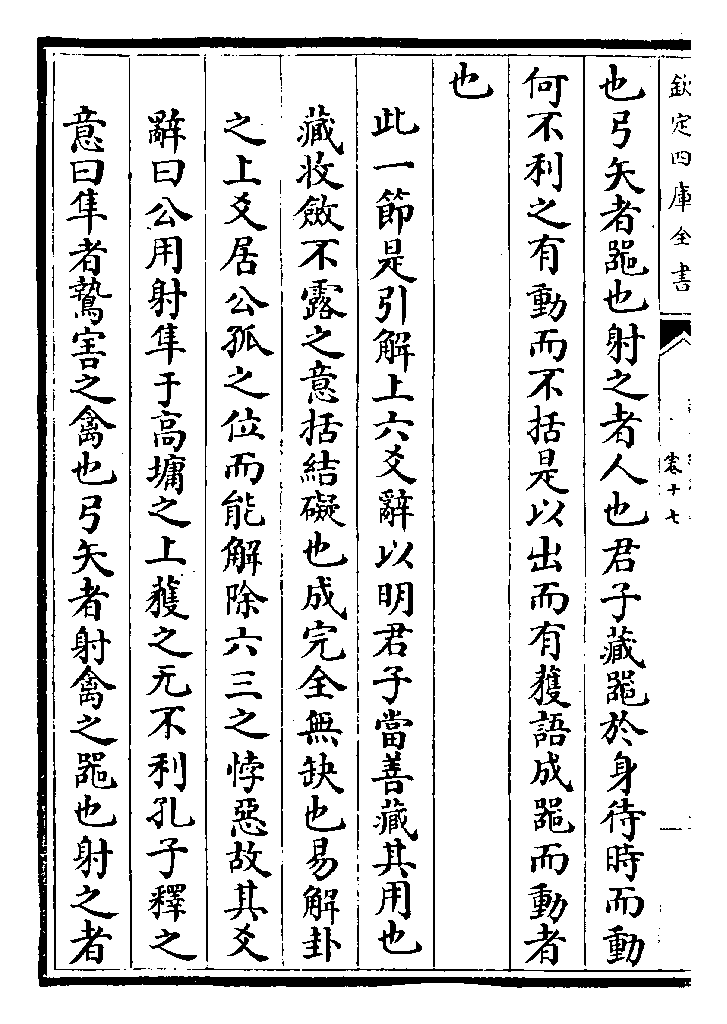 欽定四庫全書
卷十七
也弓矢者器也射之者人也君子藏器於身待時而動
何不利之有動而不括是以出而有獲語成器而動者
也
此一節是引解上六爻辭以明君子當善藏其用也
藏收斂不露之意括結礙也成完全無缺也易解卦
之上爻居公孤之位而能解除六三之悖惡故其爻
辭曰公用射隼于高墉之上獲之无不利孔子釋之
意曰隼者鷙害之禽也弓矢者射禽之器也射之者